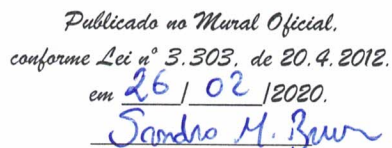 Publicado no Mural Oficial,
conforme Lei nº 3.303, de 20.4.2012.
em 26 / 02 /2020.
Sandro M.